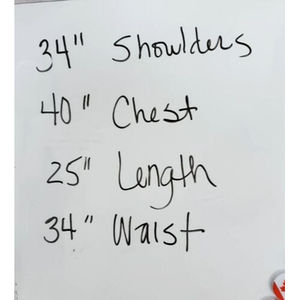 34" Shoulders
40" Chest
25" Length
34" Waist